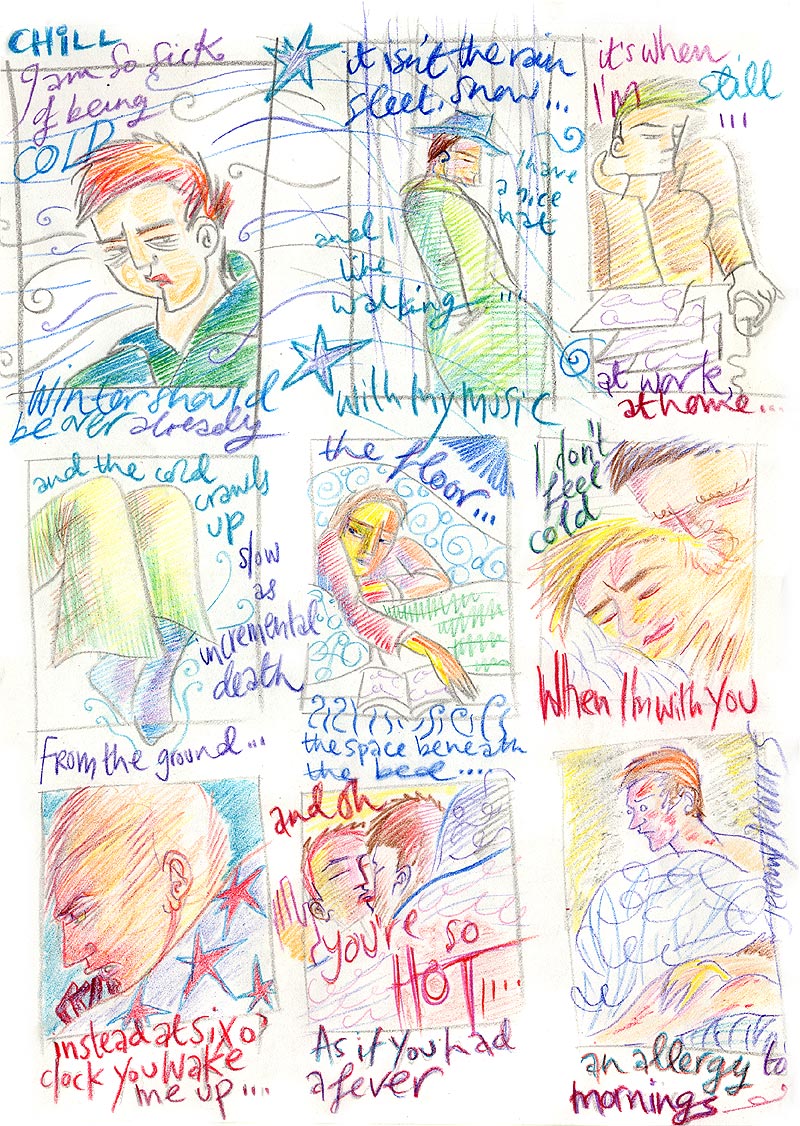 CHILL
I am so sick
of being
COLD
Winter should
be over already
it isn't the rain
sleet, snow...
I have
a nice
hat
and I
like
walking....
with my music
it's when
I'm still
...
at work,
at home...
and the cold
crawls
up
slow
as
incremental
death
From the ground...
the floor...
the space beneath
the bed....
I don't
feel
cold
When I'm with you
instead at six o'
clock you wake
me up....
and oh
you're so
HOT....
As if you had
a fever
an allergy to
mornings